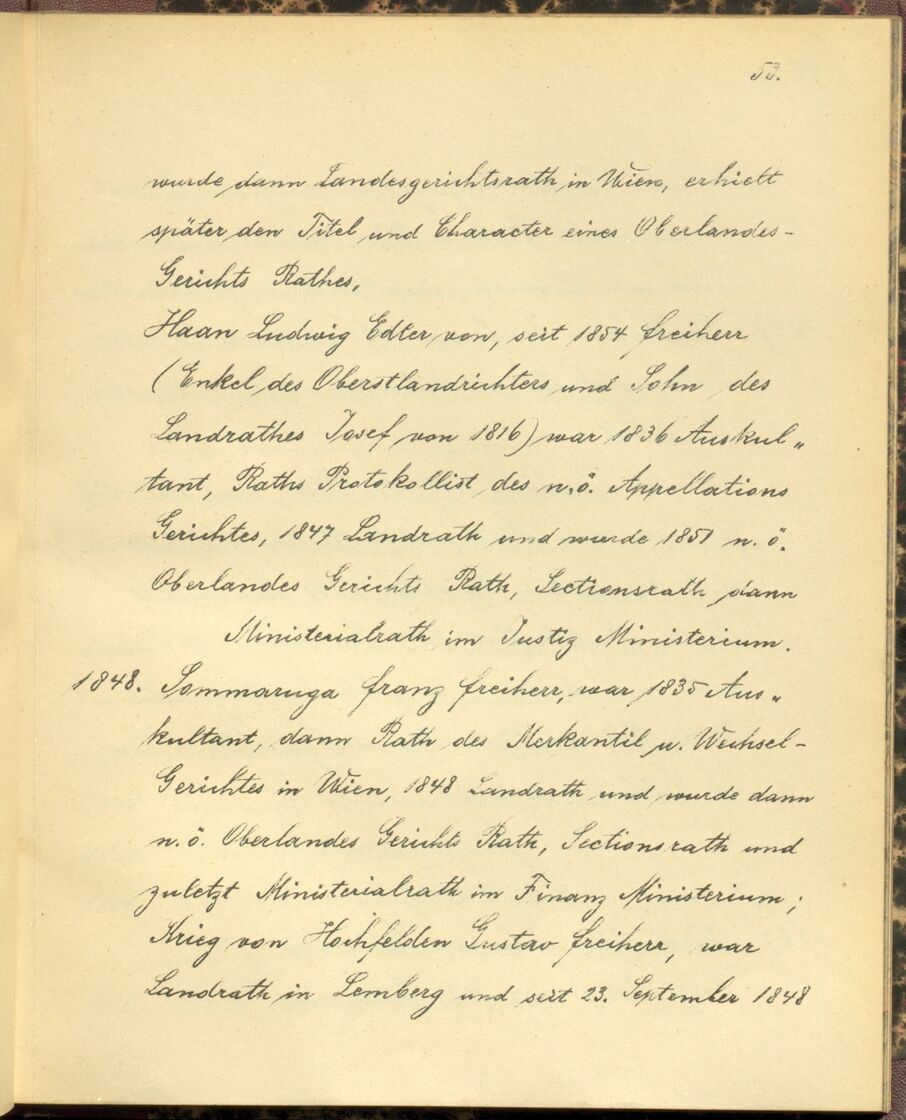 53.
wurde dann Landesgerichtsrath in Wien, erhielt
später den Titel und Character eines Oberlandes-
Gerichts Rathes,
Haan Ludwig Edler von, seit 1854 freiherr
(Enkel des Oberstlandrichters und Sohn des
Landrathes Josef von 1816) war 1836 Auskul„
tant, Raths Protokollist des n. ö. Appellations
Gerichtes, 1847 Landrath und wurde 1851 n. ö.
Oberlandes Gerichts Rath, Sectionsrath dann
Ministerialrath im Justiz Ministerium.
1848. Sommaruga franz freiherr, war 1835 Aus„
kultant, dann Rath des Merkantil u. Wechsel-
Gerichtes in Wien, 1848 Landrath und wurde dann
n. ö. Oberlandes Gerichts Rath, Sectionsrath und
zuletzt Ministerialrath im Finanz Ministerium;
Krieg von Hochfelden Gustav freiherr, war
Landrath in Lemberg und seit 23. September 1848